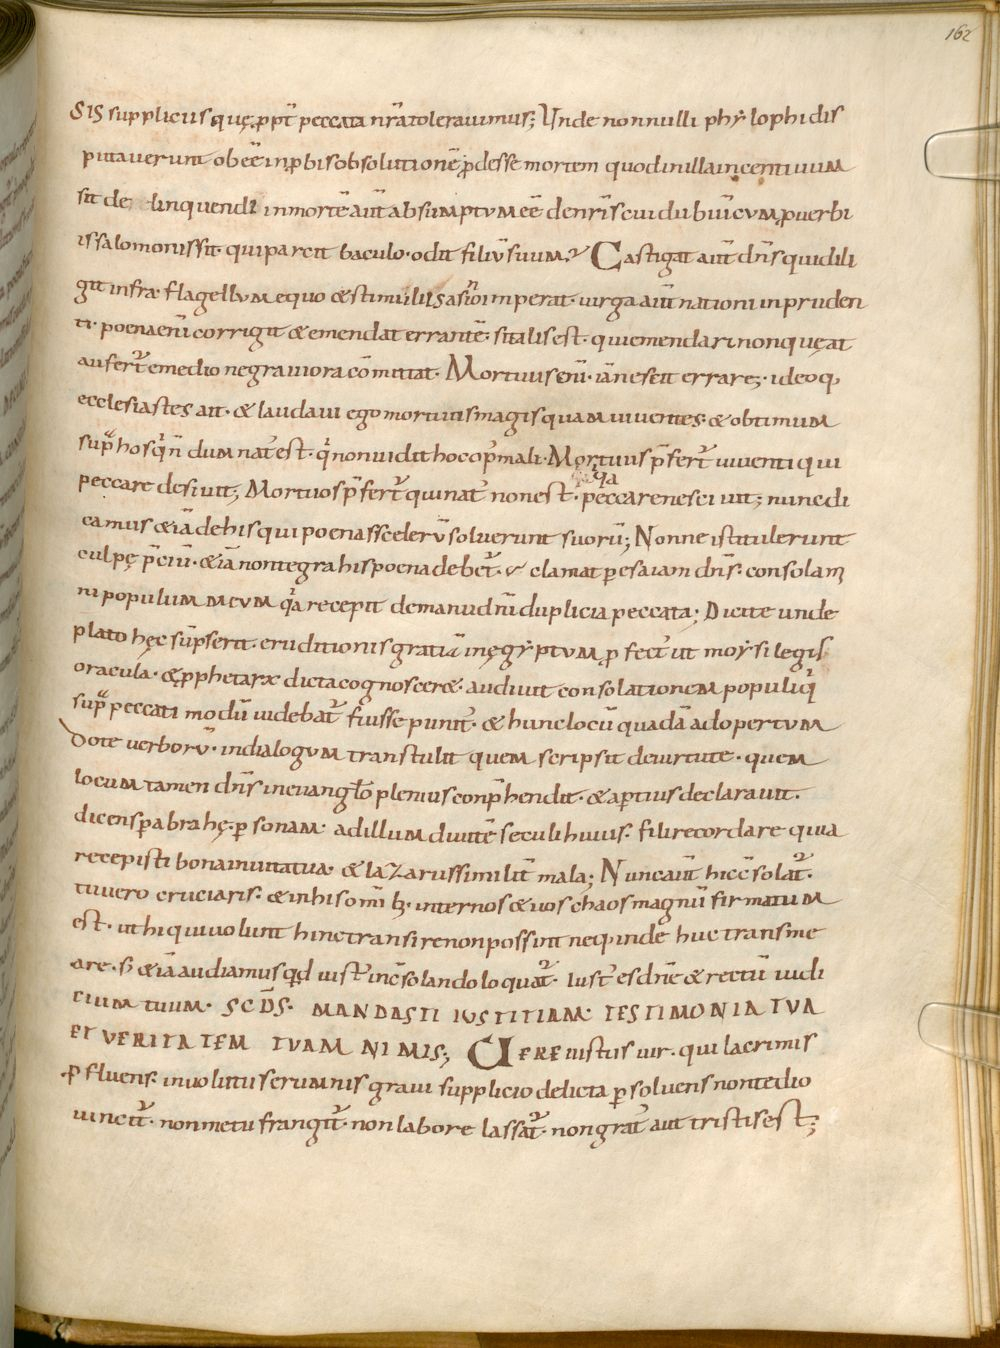 162
sis suppliciis quę ꝓpt̄ peccata nr̄a toleravimus; Unde nonnulli phẏlophi dis
putaverunt ob eē inꝓbis obsolutionē ꝓdesse mortem quod in illa incentivum
sit delinquendi in mortē aūt absumptum eē de nr̄is cui dubiū cum ꝓverbi
is salomonis sit· qui parcit baculo· odit filiū suum? Castigat aūt dn̄s qui dili
git infra& flagellum equo & stimulus asino imperat· virga aūt nationi inpruden
ti· poena eni̅ corrigit & emendat errantē· si talis est· qui emendari non quęat
aufert᷑ e medio ne graviora cōmittat· Mortuus eni̅· iā nescit errare; ideoq;
ecclesiastes ait· & laudavi ego mortuus magis quam viventes· & obtimum
sup̄ hos qͥ n̄dum nat᷑ est· qͥ non vidit hoc op᷑ mali· Mortuus p̄fert᷑ viventi qui
peccare desivit; Mortuos p̄fert᷑ qui nat᷑ non est· qͣa peccare nescivit; nunc di
camus & iā de his qui poenas scelerū solverunt suorū; Nonne isti tulerunt
culpę p̄ciū· & iā non tegra his poena debet᷑· & clamat ꝑ esaiam dn̄s· consolam
ni populum meum qͥa recepit de manu dn̄i duplicia peccata; Dicite unde
plato hęc sūpserit· eruditionis gratiā in ęgẏptum ꝓfect᷑ ut moẏsi legis
oracula· & ꝓphetarȩ dicta cognosceret· audivit consolationem populi qͥ
sup̄ peccati modū videbat᷑ fuisse punit᷑· & hunc locū quadā adopertum
dote verborū· in dialogum transtulit quem scripsit de virtute· quem
locum tamen dn̄s in evangl̄o plenius conp̄hendit· & aꝑtius declaravit·
dicens ꝑ abrahę ꝑsonam· ad illum divitē seculi huius· fili recordare quia
recepisti bona in vita tua· & lazarus similit̄ mala; Nunc aūt hic c̄solat᷑·
tu vero cruciaris· & in his omib; inter nos & vos chaos magnū firmatum
est· ut hi qui volunt hinc transire non possint neq; inde huc transme
are· s; & iā audiamus qd̄ iust᷑ inc̄solando loquat᷑· Iust᷑ es dn̄e & rectū iudi
cium tuum· SCD̄S· MANDASTI IUSTITIAM TESTIMONIA TUA
ET VERITATEM TUAM NIMIS; VERE iustus vir· qui lacrimis
ꝓfluens· involutus erumnis gravi supplicio delicta ꝑsolvens non tedio
vincit᷑· non metu frangit᷑· non labore lassat᷑· non grat᷑ aut tristis est;